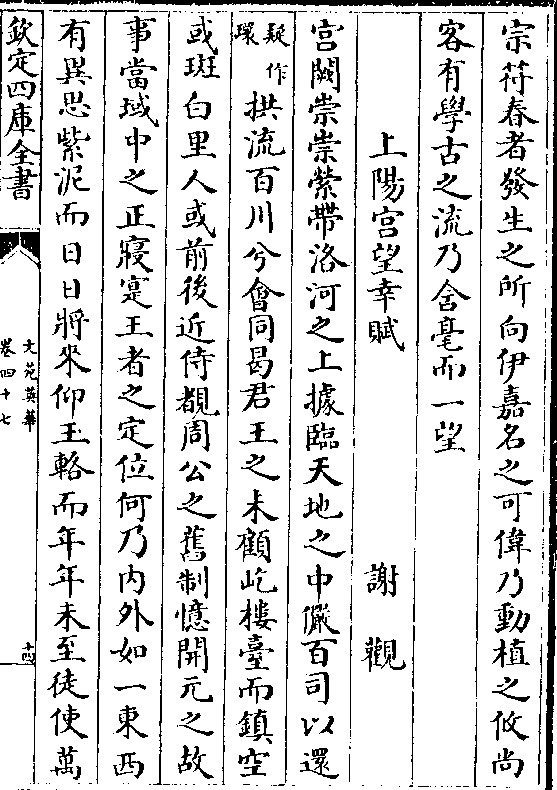 宗符春者發生之所向伊嘉名之可偉乃動植之攸尚
客有學古之流乃含毫而一望
上陽宮望幸賦 謝觀
宮闕崇崇縈帶洛河之上據臨天地之中儼百司以還
疑作環拱流百川兮會同曷君王之未顧屹樓臺而鎮空
或斑白里人或前後近侍覩周公之舊制憶開元之故
事當域中之正寢寔王者之定位何乃內外如一東西
有異思紫泥而日日將來仰玉輅而年年未至徒使萬
欽定四庫全書
文苑英華
卷四十七
十四